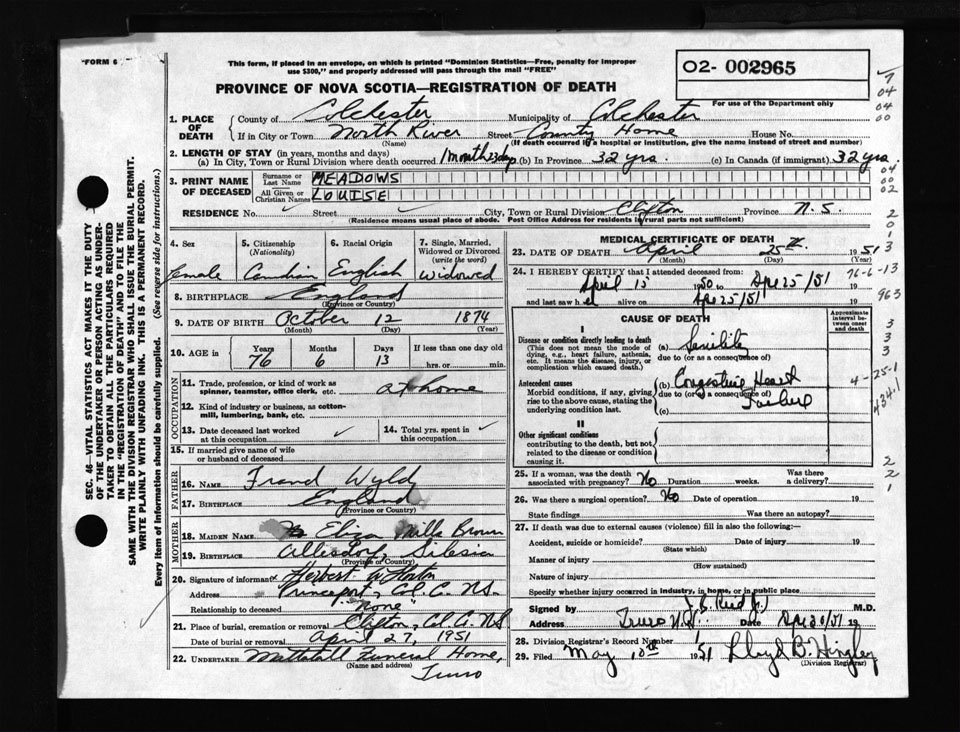 "FORM 6
This form, if placed in an envelope, on which is printed "Dominion Statistics—Free, penalty for improper
use $300," and properly addressed will pass through the mail "FREE"
PROVINCE OF NOVA SCOTIA—REGISTRATION OF DEATH
O2- 002965
For use of the Department only
7
04
04
00
1. PLACE OF DEATH
County of Colchester Municipality of Colchester
If in City or Town North River Street County Home House No.
(Name) (If death occurred in a hospital or institution, give the name instead of street and number)
2. LENGTH OF STAY (in years, months and days)
(a) In City, Town or Rural Division where death occurred 1 month 23 days (b) In Province 32 yrs. (c) In Canada (if immigrant) 32 yrs.
04
00
02
3. PRINT NAME OF DECEASED
Surname or Last Name MEADOWS
All Given or Christian Names LOUISE
RESIDENCE No. Street City, Town or Rural Division Clifton Province N.S.
(Residence means usual place of abode. Post Office Address for residents in rural parts not sufficient)
2
0
1
3
4. Sex
female
5. Citizenship (Nationality)
Canadian
6. Racial Origin
English
7. Single, Married, Widowed or Divorced (write the word)
Widowed
8. BIRTHPLACE England
(Province or Country)
9. DATE OF BIRTH October 12 1874
(Month) (Day) (Year)
10. AGE in Years Months Days If less than one day old
76 6 13 hrs. or min.
OCCUPATION
11. Trade, profession, or kind of work as spinner, teamster, office clerk, etc. at home
12. Kind of industry or business, as cotton-mill, lumbering, bank, etc.
13. Date deceased last worked at this occupation
14. Total yrs. spent in this occupation
15. If married give name of wife or husband of deceased
FATHER
16. NAME Wyld
17. BIRTHPLACE England
(Province or Country)
MOTHER
18. MAIDEN NAME Eliza Mills Brown
19. BIRTHPLACE Silesia
(Province or Country)
20. Signature of informant Herbert W Horton
Address Princeport, Col. Co. NS.
Relationship to deceased "None"
21. Place of burial, cremation or removal Clifton, Col. Co. NS
Date of burial or removal April 27, 1951
22. UNDERTAKER Mattatall Funeral Home,
(Name and address) Truro
MEDICAL CERTIFICATE OF DEATH
23. DATE OF DEATH April 25th 1951
(Month) (Day)
24. I HEREBY CERTIFY that I attended deceased from:
April 15 1950 to Apr 25/51
and last saw h alive on Apr 25/51 19
76-6-13
963
CAUSE OF DEATH
Approximate interval between onset and death
I
Disease or condition directly leading to death
(This does not mean the mode of dying, e.g., heart failure, asthenia, etc. It means the disease, injury, or complication which caused death.)
(a) Senility
due to (or as a consequence of)
3
3
3
Antecedent causes
Morbid conditions, if any, giving rise to the above cause, stating the underlying condition last.
(b) Congestive Heart
due to (or as a consequence of)
Failure
(c)
4-25-1
4341
II
Other significant conditions
contributing to the death, but not related to the disease or condition causing it.
2
2
1
25. If a woman, was the death associated with pregnancy? No Duration weeks. Was there a delivery?
26. Was there a surgical operation? No Date of operation 19
State findings Was there an autopsy?
27. If death was due to external causes (violence) fill in also the following:—
Accident, suicide or homicide? Date of injury 19
(State which)
Manner of injury
(How sustained)
Nature of injury
Specify whether injury occurred in industry, in home, or in public place
Signed by M.D.
Address Truro N.S. Date 19
28. Division Registrar's Record Number 1
29. Filed May 10th 1951 Lloyd B. Hingley
(Division Registrar)
SEC. 46—VITAL STATISTICS ACT MAKES IT THE DUTY
OF THE UNDERTAKER OR PERSON ACTING AS UNDER-
TAKER TO OBTAIN ALL THE PARTICULARS REQUIRED
IN THE "REGISTRATION OF DEATH" AND TO FILE THE
SAME WITH THE DIVISION REGISTRAR WHO SHALL ISSUE THE BURIAL PERMIT.
WRITE PLAINLY WITH UNFADING INK. THIS IS A PERMANENT RECORD.
Every item of information should be carefully supplied. (See reverse side for instructions.)